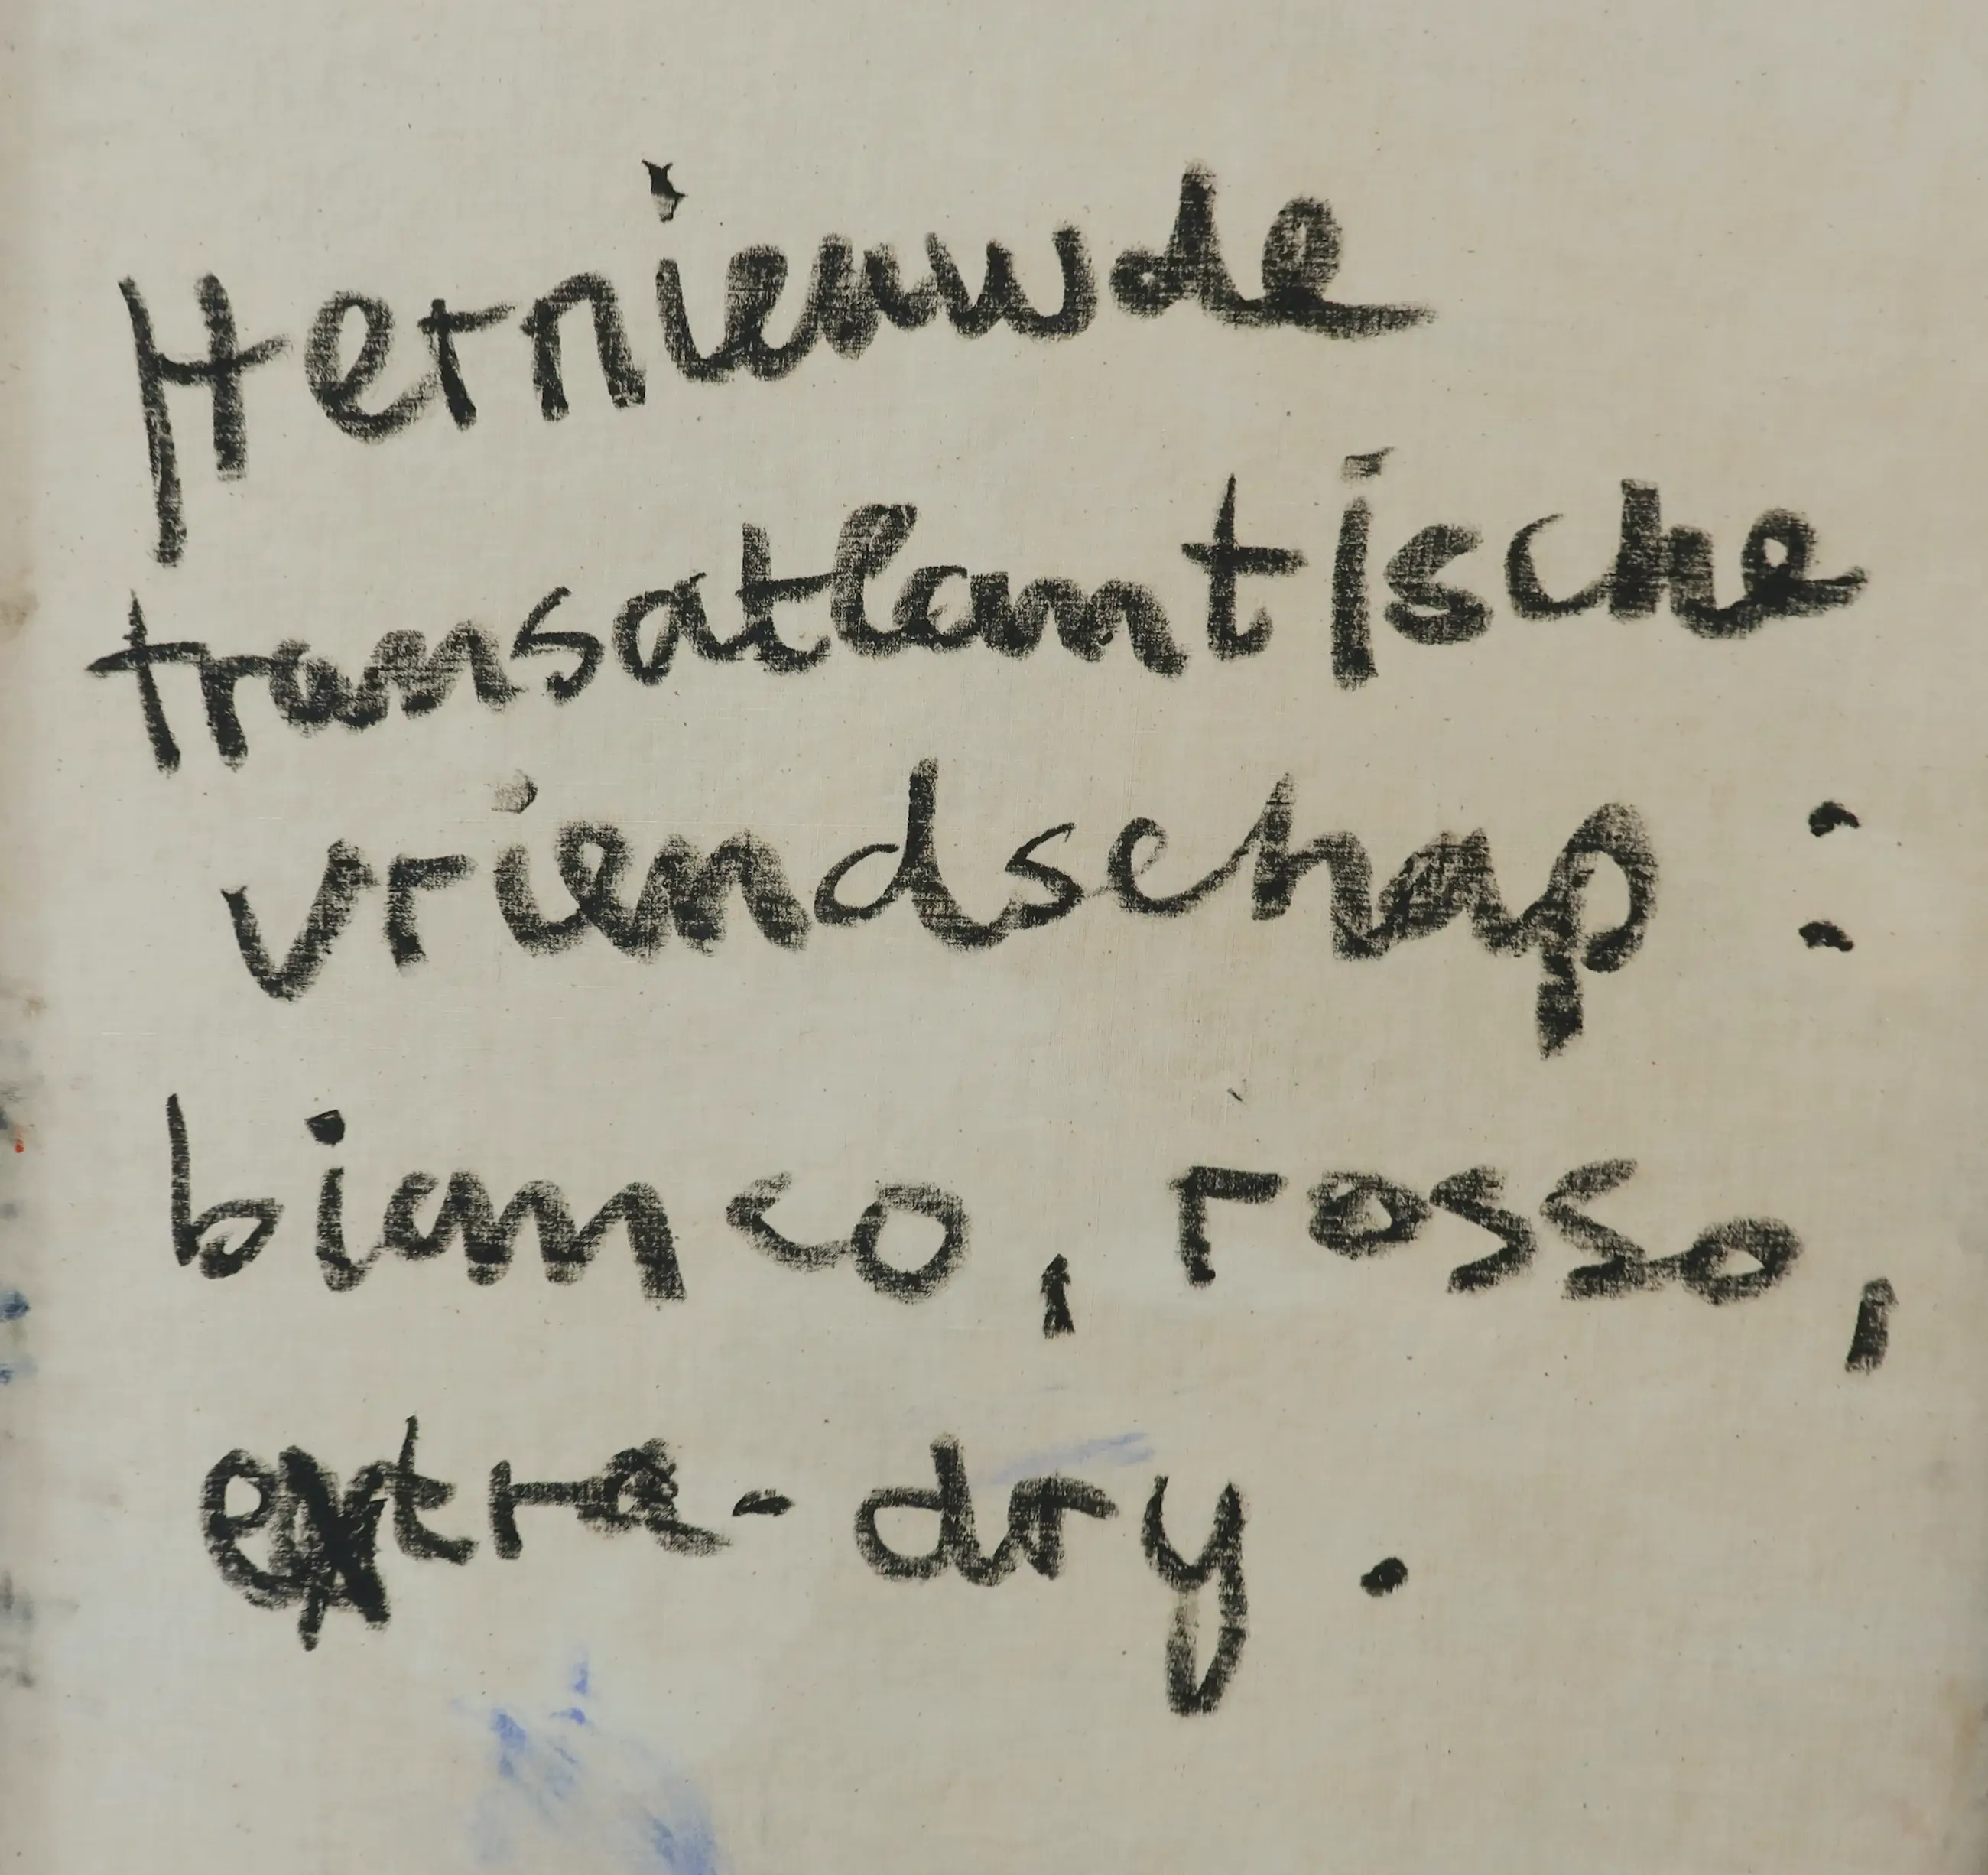 Hernieuwde
transatlantische
vriendschap :
bianco, rosso,
extra-dry.